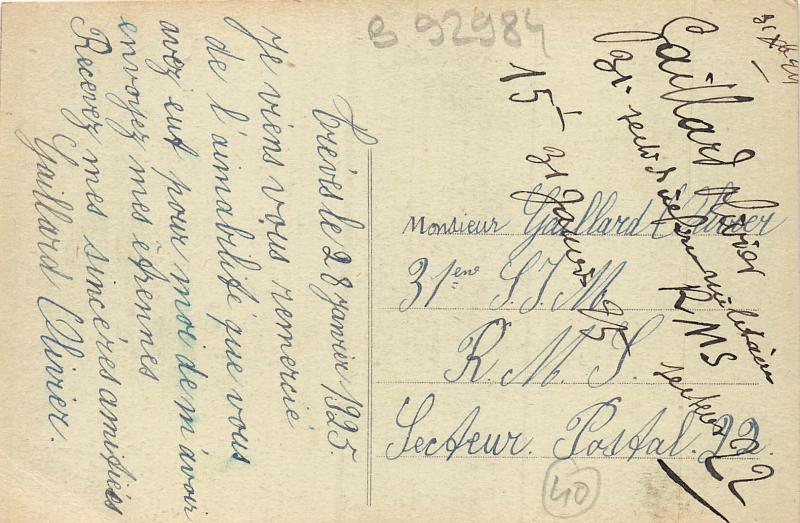 B 92984
Trèves le 28 janvier 1925.
Je viens vous remercié
de l'aimabilité que vous
avez eut pour moi de m'avoir
envoyez mes étrennes
Recevez mes sincères amitiés
Gaillard Olivier.
Monsieur Gaillard Olivier
31ème S.I.M.
R. M. S.
Secteur Postal. 22.
Gaillard Olivier
31
militaire
RMS
secteur 22
15
31 Janvier 25
40